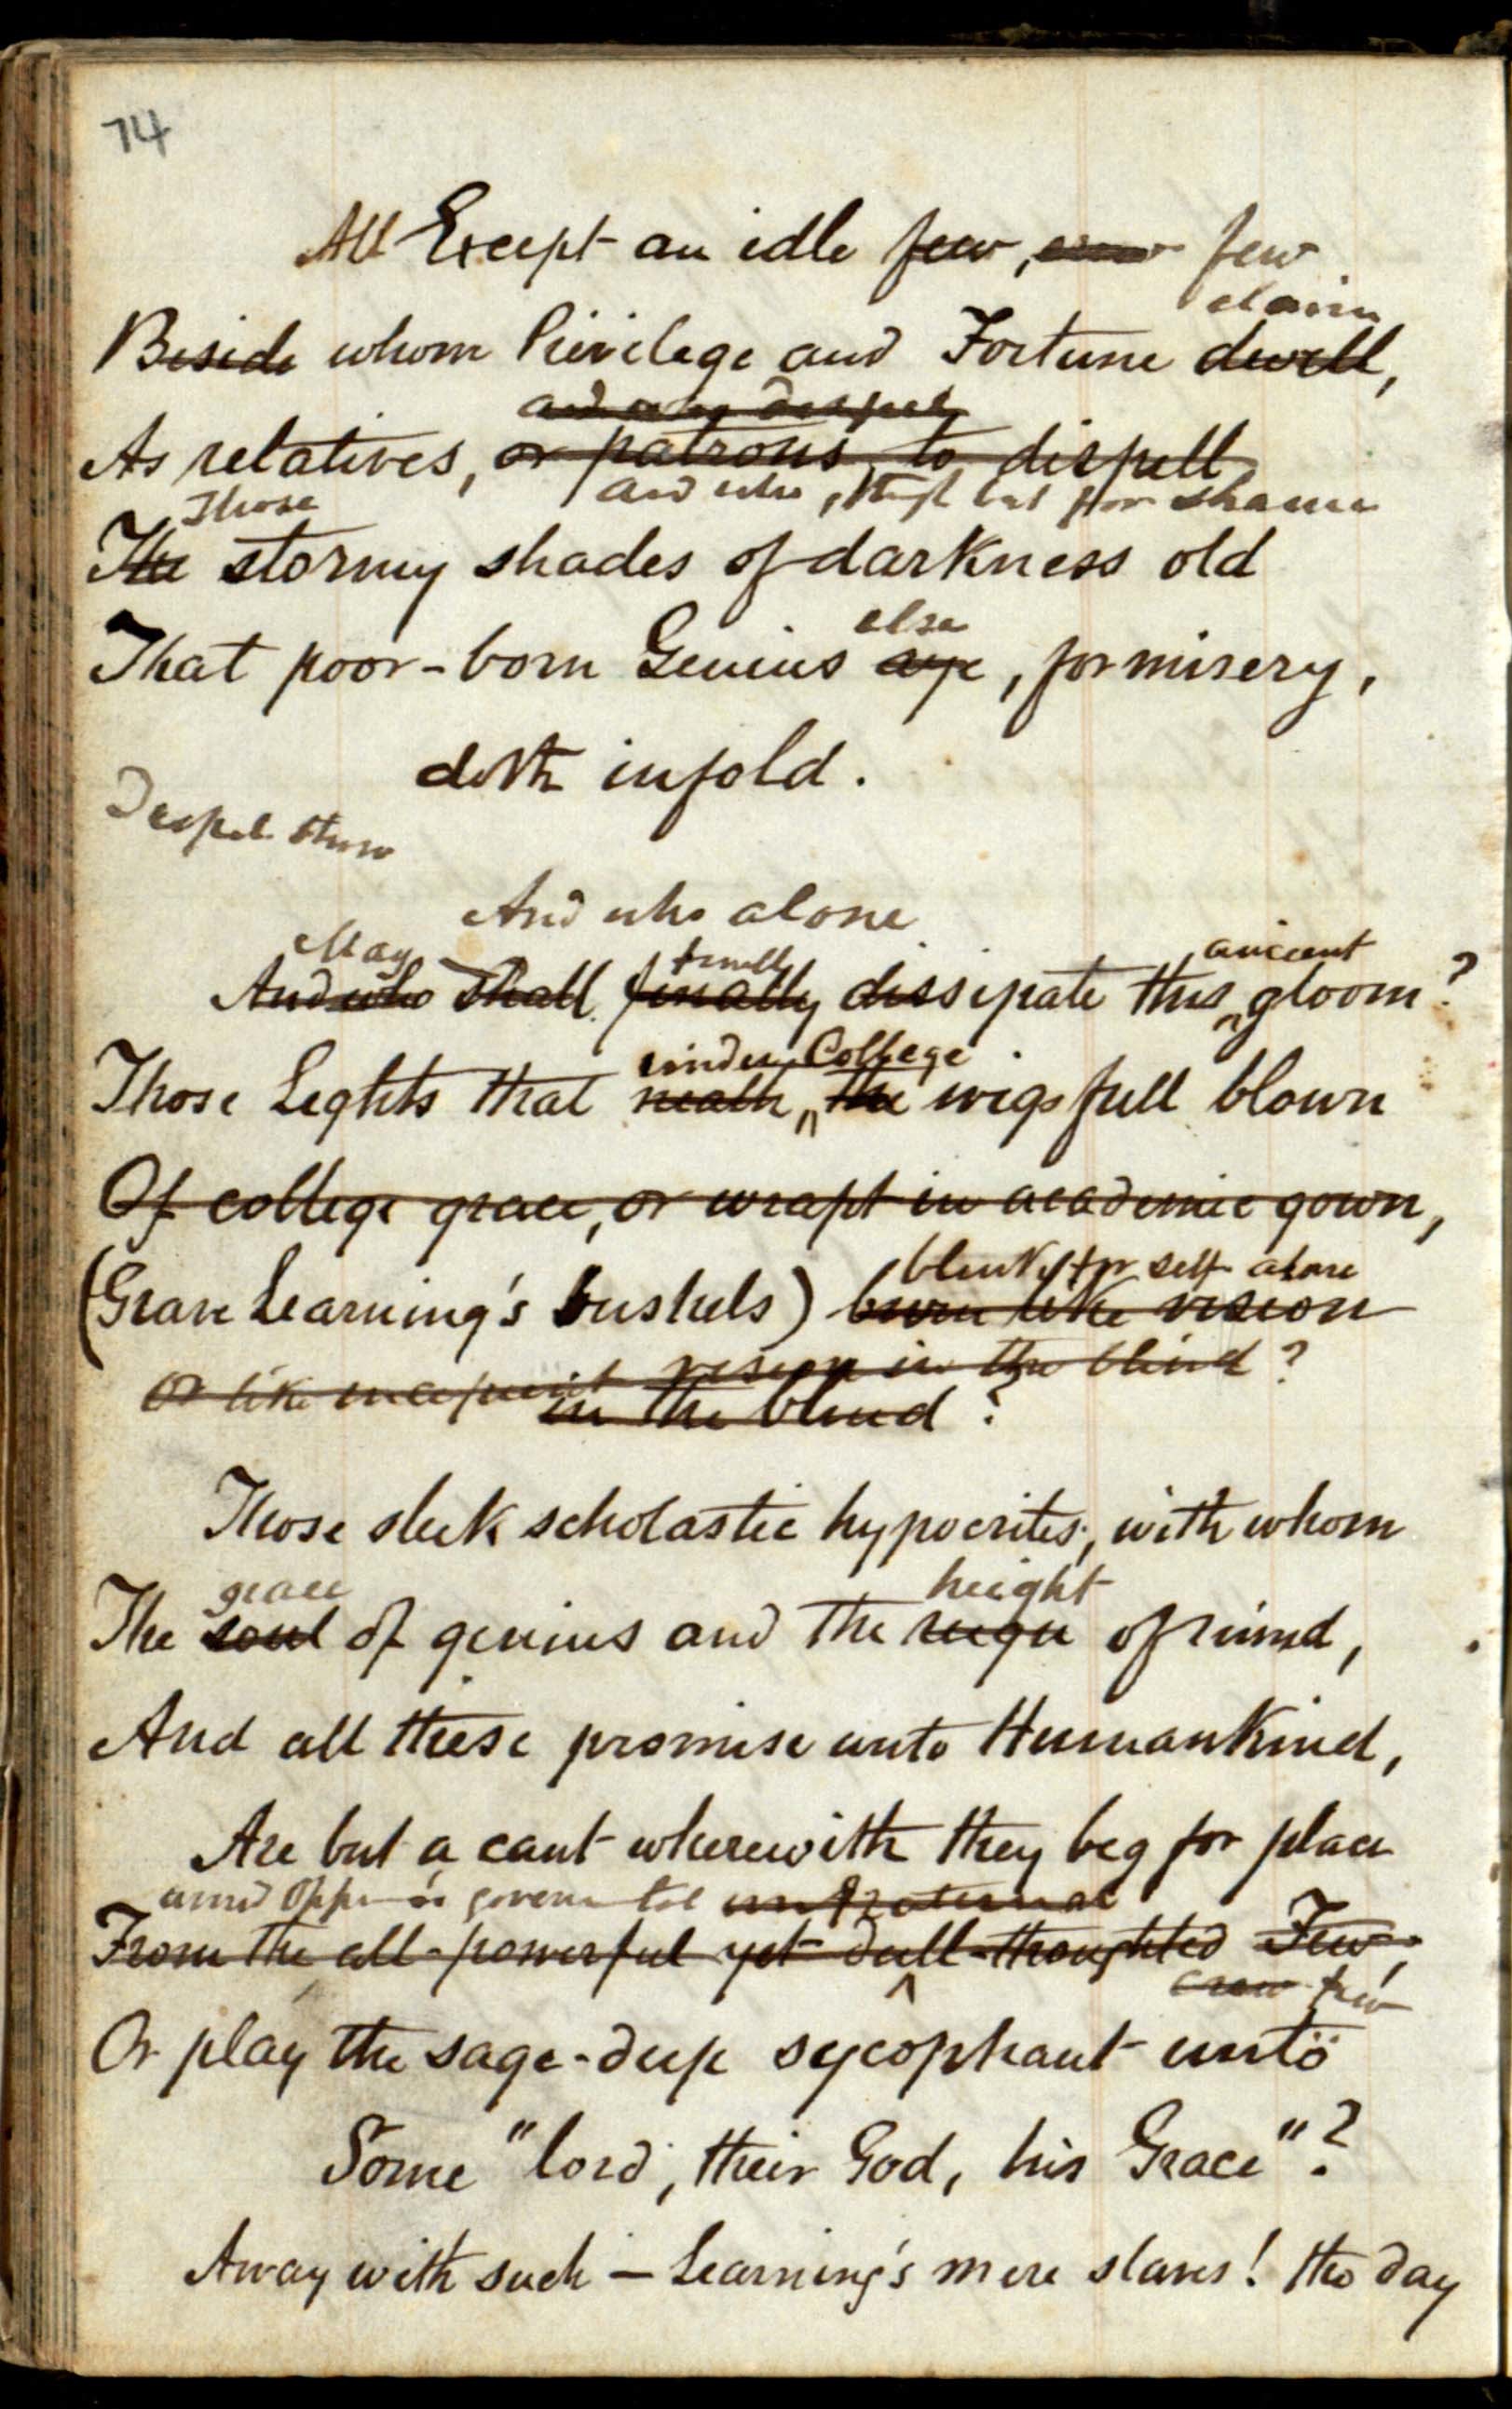 74
All Except an idle few, crew few
claim
Beside whom Privilege and Fortune dwell,
and may dispel
As relatives, or patrons, to dispell
and who, but for shame
Those
The stormy shades of darkness old
else
That poor-born Genius aye, for misery,
doth infold.
Dispel
And who alone
May ancient
And who Shall finally dissipate this gloom?
under College
Those Lights that neath the wigs full blown
Of college grace, or wrapt in academic gown,
blinks for self alone
(Grave Learning's bushels) burn like vision
Or like vision in the blind?
in the blind?
Those sleek scholastic hypocrites, with whom
grace height
The soul of genius and the reign of mind,
And all these promise unto Humankind,
Are but a cant wherewith they beg for place
From the all-powerful yet dull-thoughted Few,
crew few
Or play the sage-deep sycophant unto
Some "lord, their God, his Grace"?
Away with such — Learning's mere slaves! the day